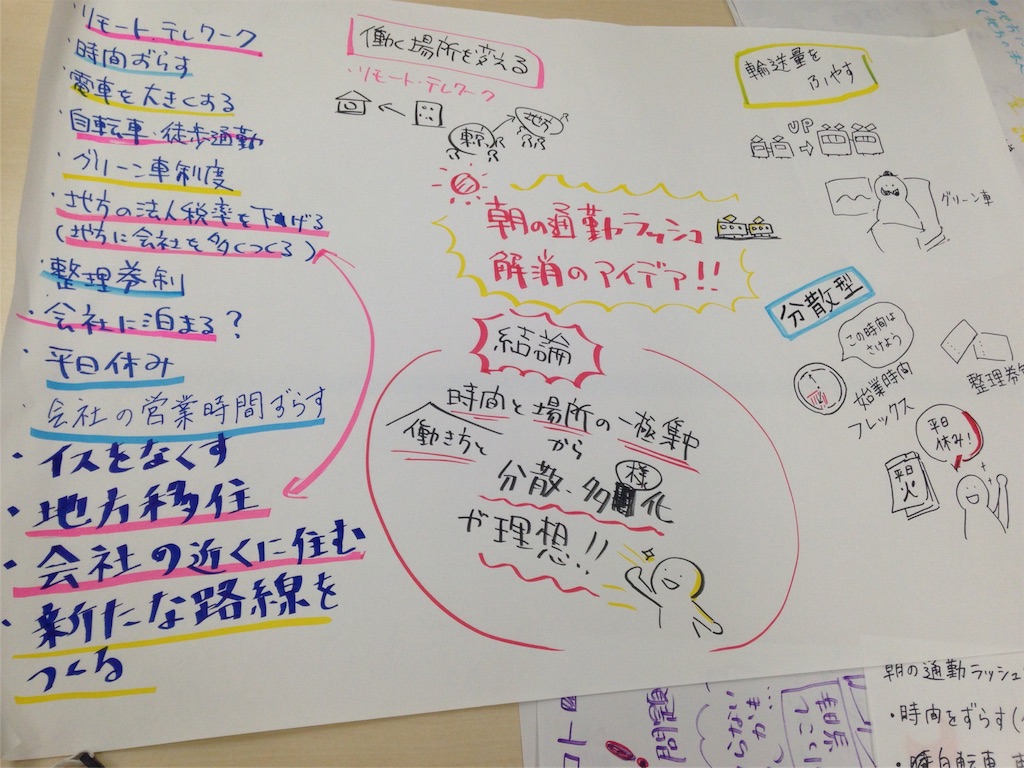 ・リモート、テレワーク
・時間ずらす
・電車を大きくする
・自転車・徒歩通勤
・グリーン車制度
・地方の法人税率を下げる
(地方に会社を多くつくる)
・整理券制
・会社に泊まる?
・平日休み
会社の営業時間ずらす
・イスをなくす
・地方移住
・会社の近くに住む
・新たな路線を
つくる
働く場所を変える
・リモート・テレワーク
東京
地方
輸送量を
ふやす
UP
グリーン車
朝の通勤ラッシュ
解消のアイデア!!
分散型
この時間は
さけよう
始業時間
フレックス
整理券制
平日
休み!
平日
火
結論
時間と場所の一極集中
から
働き方と
分散・多様化
が理想!!
朝の通勤ラッシュ
・時間をずらす(
質問